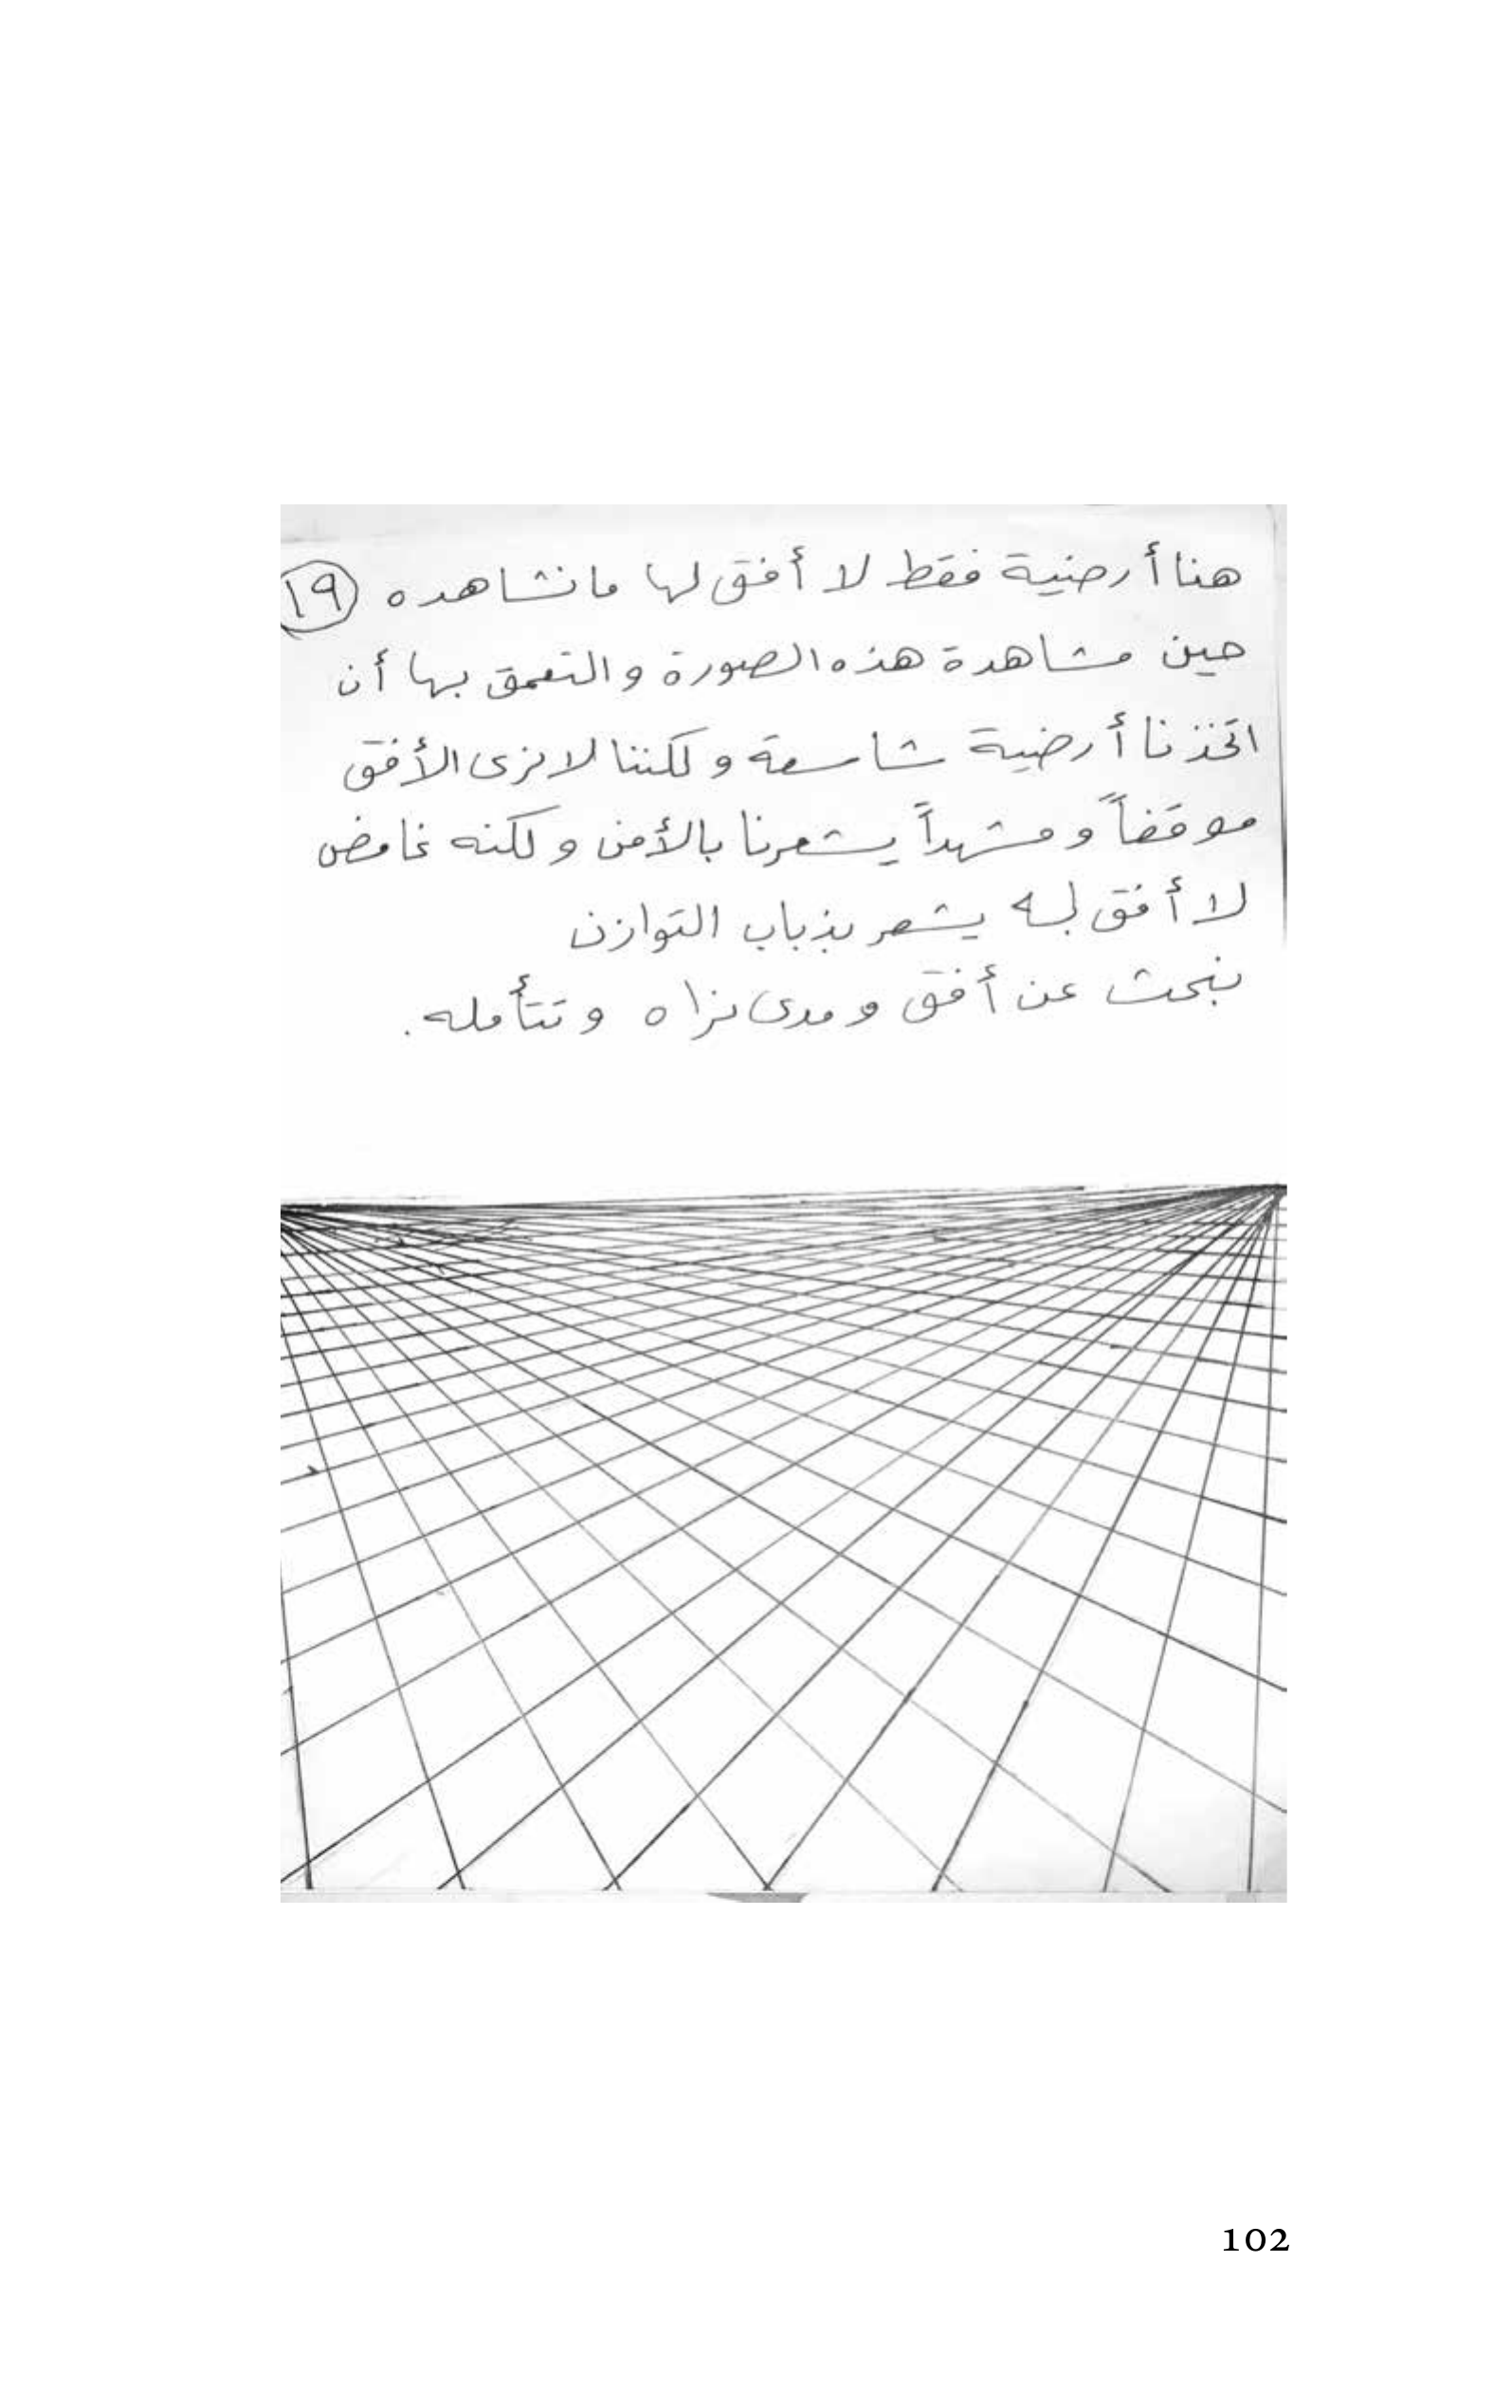 هنا أرضية فقط لا أفق لها ما نشاهده ١٩
حين مشاهدة هذه الصورة والتعمق بها أن
اتخذنا أرضية شاسعة ولكننا لا نرى الأفق
موقفاً ومشهداً يشعرنا بالأمن ولكنه غامض
لا أفق له يشعر بذباب التوازن
نبحث عن أفق ومدى نراه ونتأمله.
102